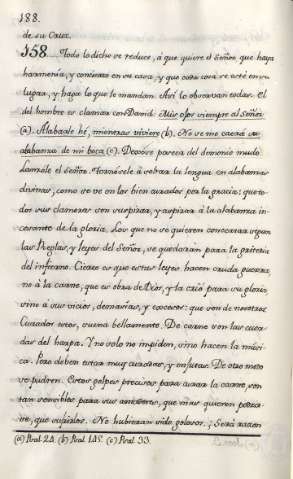 188.
de su Cruz.
158. Todo lo dicho se reduce, á que quiere el Señor, que haya
harmonía, y concierto en su casa, y que cada cosa se esté en su
lugar, y haga lo que le mandan. Así lo observarán todas. El
del hombre es clamar con David: Mis ojos siempre al Señor
(a). Alabaréle hé, mientras viviere (b). No se me caerá su
alabanza de mi boca (c). Decóre parecía del demonio mudo
Lanzóle el Señor. Tornósele á soltar la lengua en alabanzas
divinas, como se ve en los bien curados por la gracia: que to-
dos sus clamores son suspirar, y aspirar á la alabanza in-
cesante de la gloria. Los que no se quieren concertar segun
las Reglas, y leyes del Señor, se quedarán para la gritería
del infierno. Cierto es que estas leyes hacen cruda guerra,
no á la carne, que es obra de Dios, y la crió para su gloria
sino á sus vicios, demasías, y excesos: que son de nuestros
Curador esto, suena bellamente. De carne son las cuer-
das del harpa. Y no solo no impiden, sino hacen la músi-
ca. Pero deben estar muy curadas, y enjutas. De otro modo
se pudren. Estos golpes precisos para curar la carne, son
tan sensibles para sus amadores, que mas quieren podrir-
se, que sufrirlos. No hubieran sido golosos. ¿Será razon
(a) Psal. 24. (b) Psal. 145. (c) Psal. 33.